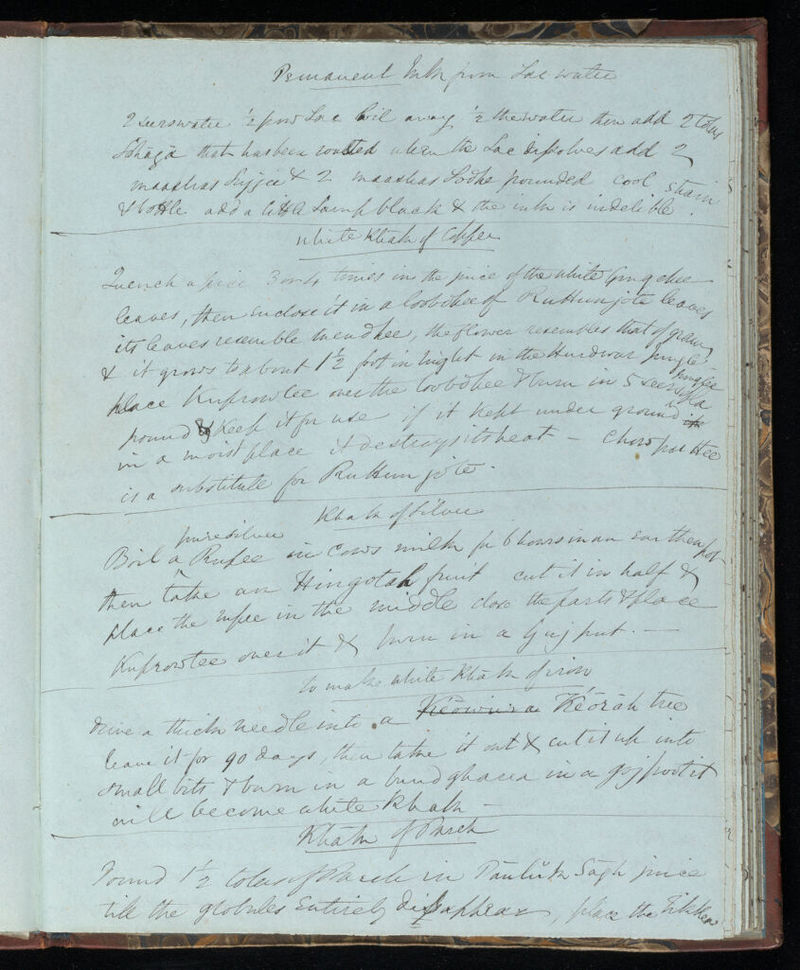 Permanent Ink from Lac water
2 seers water ½ pow Lac boil away ½ the water then add 2 tolas
Sohāgā that has been roasted when the Lac dissolves add 2
maashas Sujjee & 2 maashas Lodhe pounded cool strain
& bottle add a little Lamp black & the ink is indelible.
White Khak of Copper
Quench a pice 3 or 4 times in the juice of the white
leaves, then enclose it in a loobdhee of Ruttunjote leaves
its leaves resemble mendhee, the flower resembles that of gram
& it grows to about 1½ foot in height in the Hurdwar Jungle.
place Kuprowtee over the loobdhee & burn in 5 seers
pound & keep it for use if it kept under ground
in a moist place it destroys its heat –
is a substitute for Ruttunjote.
Khak of Silver
pure silver
Boil a Rupee in cows milk for 6 hours in an
then take an Hingotah fruit cut it in half &
place the rupee in the middle close the parts & place
Kuprowtee over it & burn in a Gujput. –
to make white Khak of iron
drive a thick needle into a Kēōrāh tree
leave it for 90 days, then take it out & cut it up into
small bits & burn in a bund ghurea in a gujpoot it
will become white Khak –
Khak of Parch
Pound 1½ tolas of Parch in Pāulŭk Sāgh juice
till the globules entirely disappear, place the Tikkea